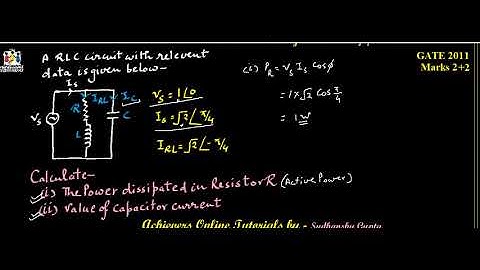 GATE 2011
Marks 2+2
A RLC circuit with relevent
data is given below-
Is
IRL
IC
R
C
L
Vs
Vs = 1∠0
Is = √2 ∠π/4
IRL = √2 ∠-π/4
(i) PR = Vs Is Cosϕ
= 1×√2 Cos π/4
= 1W
Calculate-
(i) The Power dissipated in Resistor R (Active Power)
(ii) Value of capacitor current
Achievers Online Tutorials by - Sudhanshu Gupta